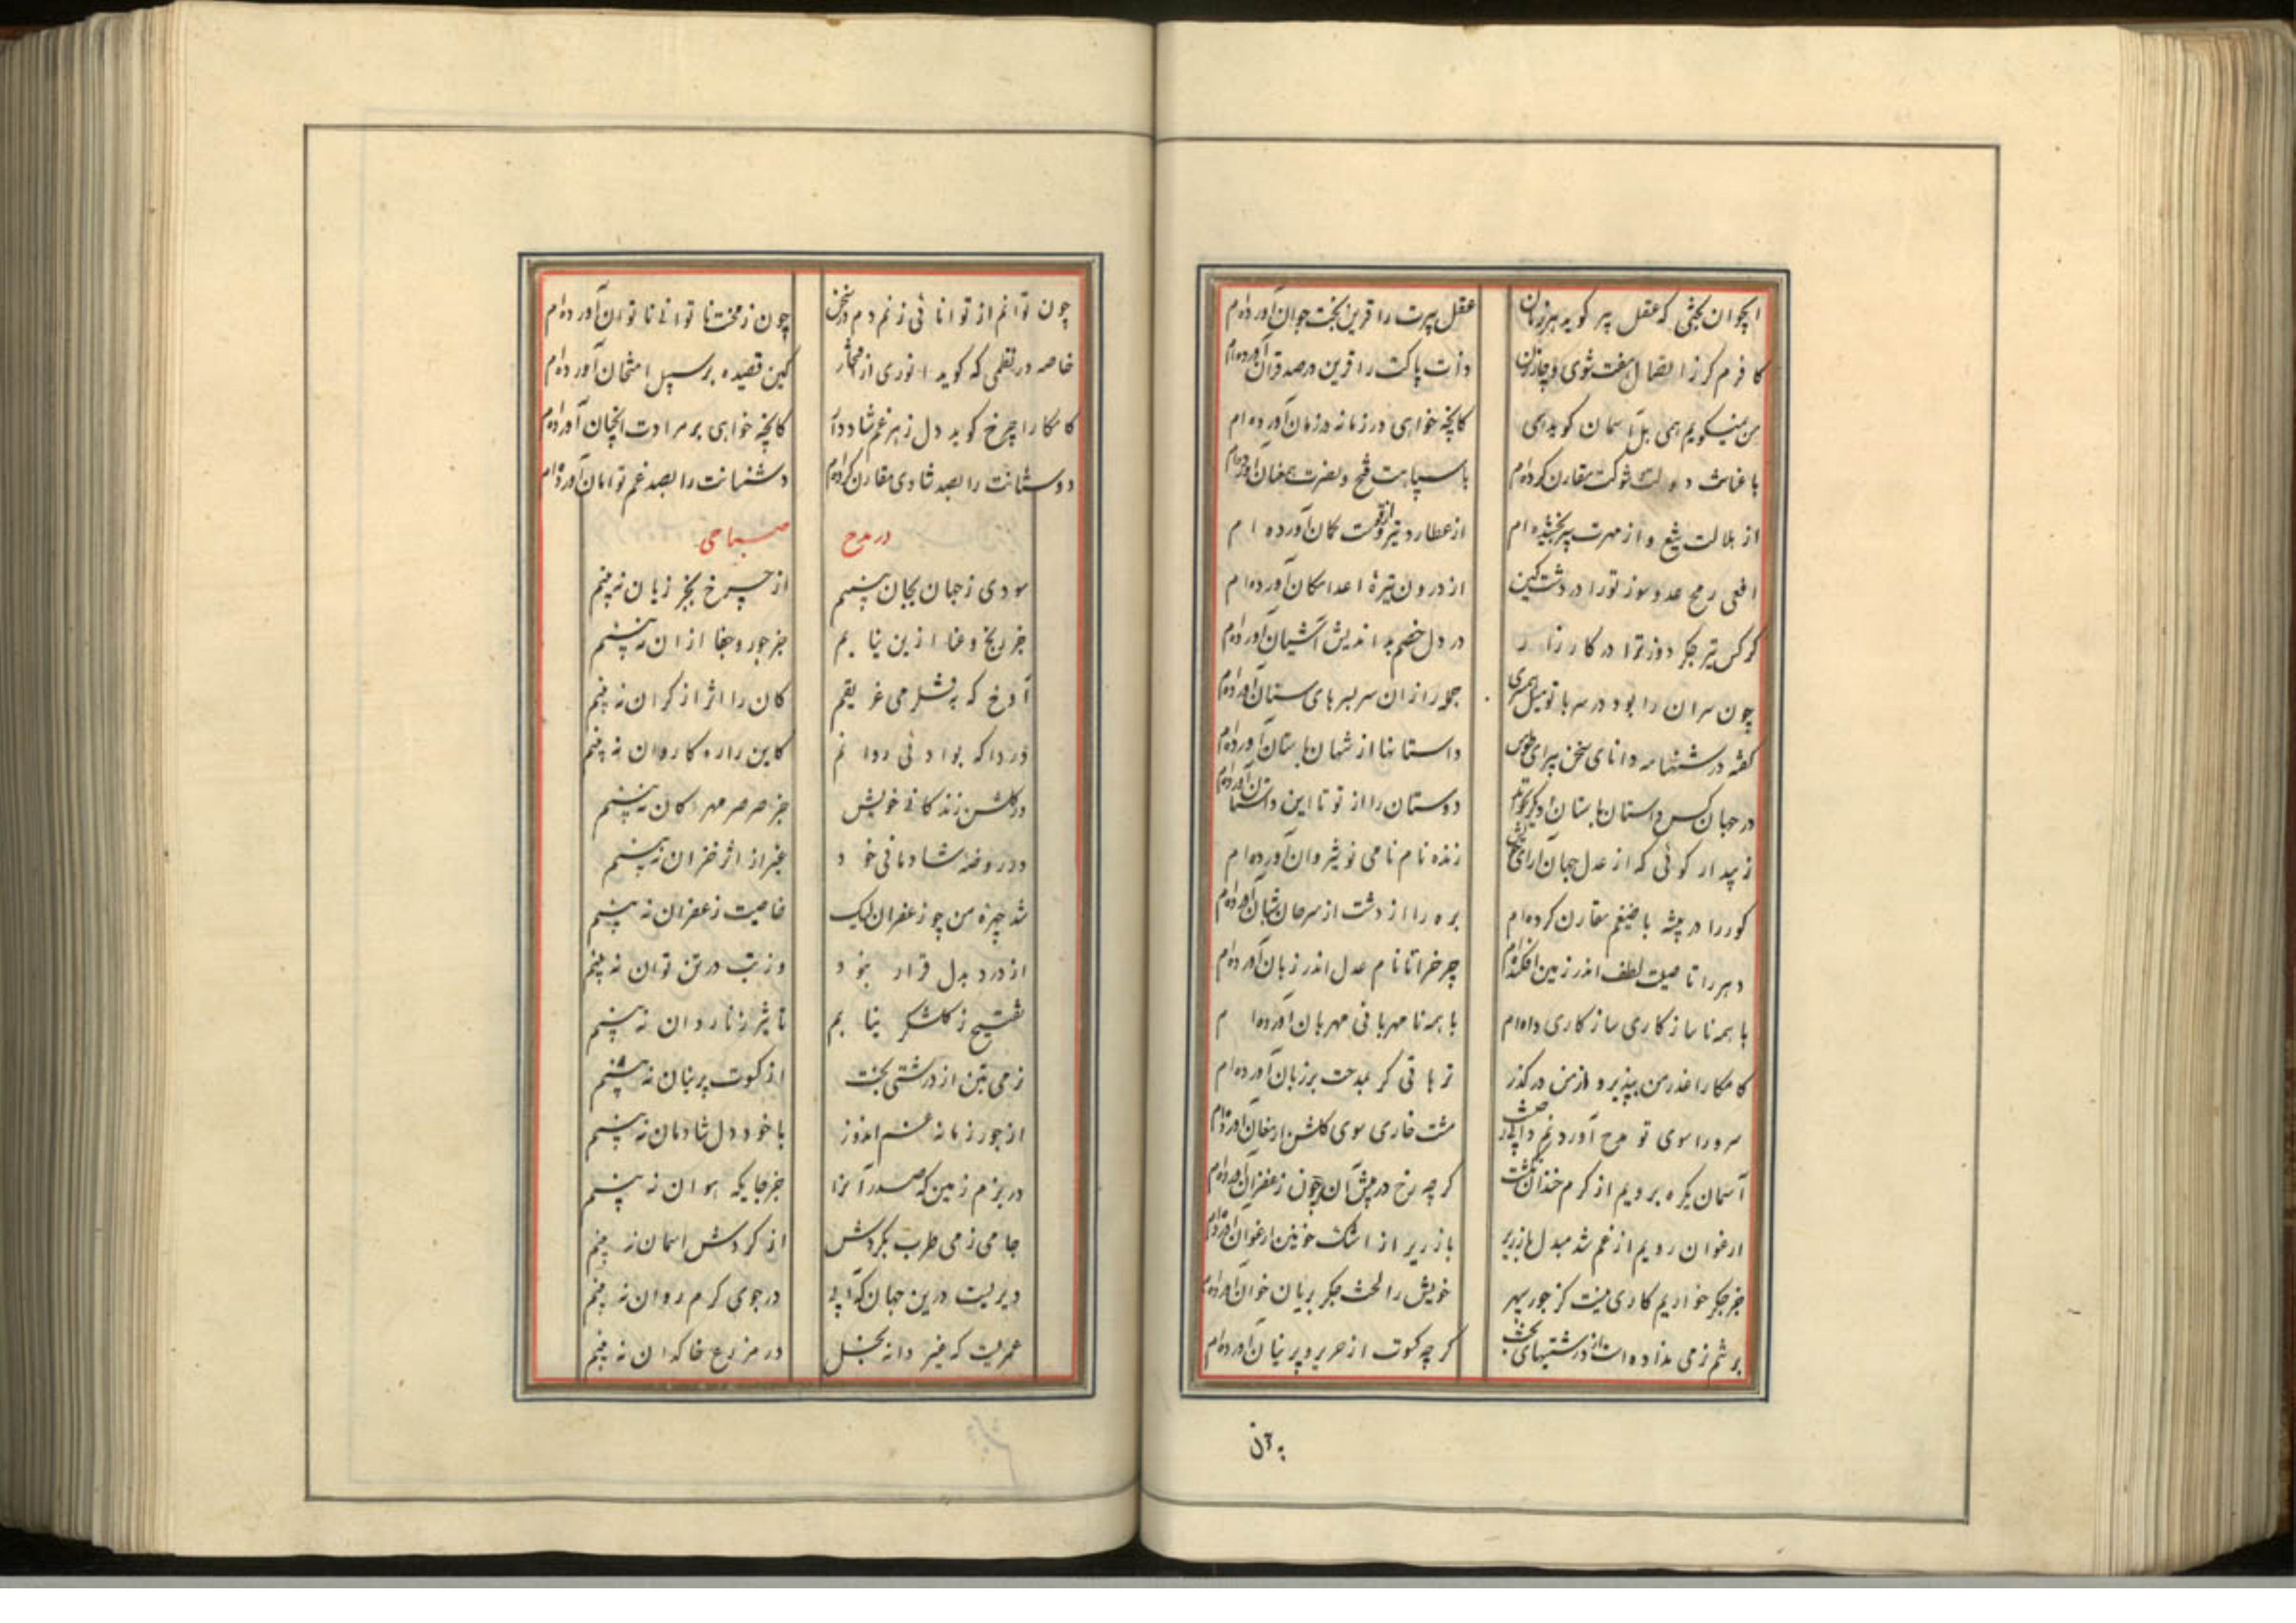 ایجوان بختی که عقل پیر گوید هر زمان عقل پیرت را قرین بخت جوان آورده‌ام
کافرم گر ز اتصال هفت شوی و چار زن ذات پاکت را قرین در صد قران آورده‌ام
من نمیگویم همی بل آسمان گوید همی کانچه خواهی در زمانه در زمان آورده‌ام
با عنانت دولت و شوکت مقارن کرده‌ام با سپاهت فتح و نصرت همعنان آورده‌ام
از هلالت تیغ و از مهرت سپر بخشیده‌ام از عطارد تیر و از قوست کمان آورده‌ام
افعی رمح عدو سوز تو را در دشت کین از درون تیرهٔ اعدا مکان آورده‌ام
کرکس تیر جگر دوز ترا در کارزار در دل خصم بد اندیش آشیان آورده‌ام
چون سران را بود در سر با تو میل همسری جمله را زان سر بسرهای سنان آورده‌ام
گفته در شهنامه دانای سخن پیرای طوس داستانها از شهان باستان آورده‌ام
در جهان کس داستان باستان دیگر نخواند دوستان را از تو تا این داستان آورده‌ام
زنده نام نامی نوشیروان آورده‌ام
گور را در بیشه با ضیغم مقارن کرده‌ام بره را از دشت از سرحان شبان آورده‌ام
دهر را تا صیت لطف اندر زمین افکنده‌ام چرخ را تا نام عدل اندر زبان آورده‌ام
با همه ناسازگاری سازگاری داده‌ام با همه نامهربانی مهربان آورده‌ام
کامکارا عذر من بپذیر و از من در گذر
سرورا سوی تو مدح آوردنم مشت خاری سوی گلشن ارمغان آورده‌ام
آسمان یکره برویم از کرم خندان نگشت گرچه رخ در پیش آن چون زعفران آورده‌ام
ارغوان رویم از غم شد مبدل با زریر با زریر از اشک خونین ارغوان آورده‌ام
جز جگر خواریم کاری نیست کز جور سپهر خویش را لخت جگر بریان خوان آورده‌ام
گرچه کسوت از حریر و پرنیان آورده‌ام
به آن
چون توانم از توانائی زنم دم در سخن چون ز محنت ناتوانی ناتوان آورده‌ام
خاصه در نظمی که گوید انوری کین قصیده بر سبیل امتحان آورده‌ام
کامکارا چرخ گوید دل ز هر غم شاد دار کانچه خواهی بر مرادت آنچنان آورده‌ام
دوستانت را بصد شادی مقارن کرده‌ام دشمنانت را بصد غم توامان آورده‌ام
در مدح صباحی
سودی ز جهان بجان نبینم از چرخ بجز زیان نبینم
جز رنج و عنا ازین نیابم جز جور و جفا ازان نبینم
آوخ که به قلزمی غریقم کان را اثر از کران نبینم
دردا که بوادئی روانم کاین را ره کاروان نبینم
در گلشن زندگانی خویش جز صرصر مهرگان نبینم
در روضهٔ شادمانی خود غیر از اثر خزان نبینم
شد چهرهٔ من چو زعفران لیک خاصیت زعفران نبینم
از درد بدل قرار نبود وز تب در تن توان نبینم
تفتیح ز گلشکر نیابم تأثیر ز ناردان نبینم
نرمی بتن از درشتی بخت از کسوت پرنیان نبینم
از جور زمانه غم اندوز با خود دل شادمان نبینم
در بزم زمین که صدر آنرا جز جایگه هوان نبینم
جامی ز می طرب بگردش از گردش آسمان نبینم
دیریست درین جهان که آبی در جوی کرم روان نبینم
عمریست که غیر دانه بخل در مزرع خاکدان نبینم